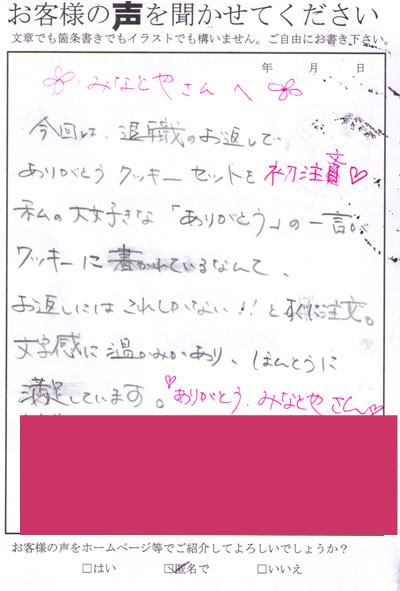 お客様の声を聞かせてください
文章でも箇条書きでもイラストでも構いません。ご自由にお書き下さい。
年 月 日
みなとやさんへ
今回は、退職のお返しで
ありがとうクッキーセットを初注文♡
私の大好きな「ありがとう」の一言が
クッキーに書かれているなんて、
お返しにはこれしかない!!とすぐに注文。
文字感に温かみがあり、ほんとうに
満足しています。♡ありがとう、みなとやさん♡
お客様の声をホームページ等でご紹介してよろしいでしょうか?
□はい ☑匿名で □いいえ